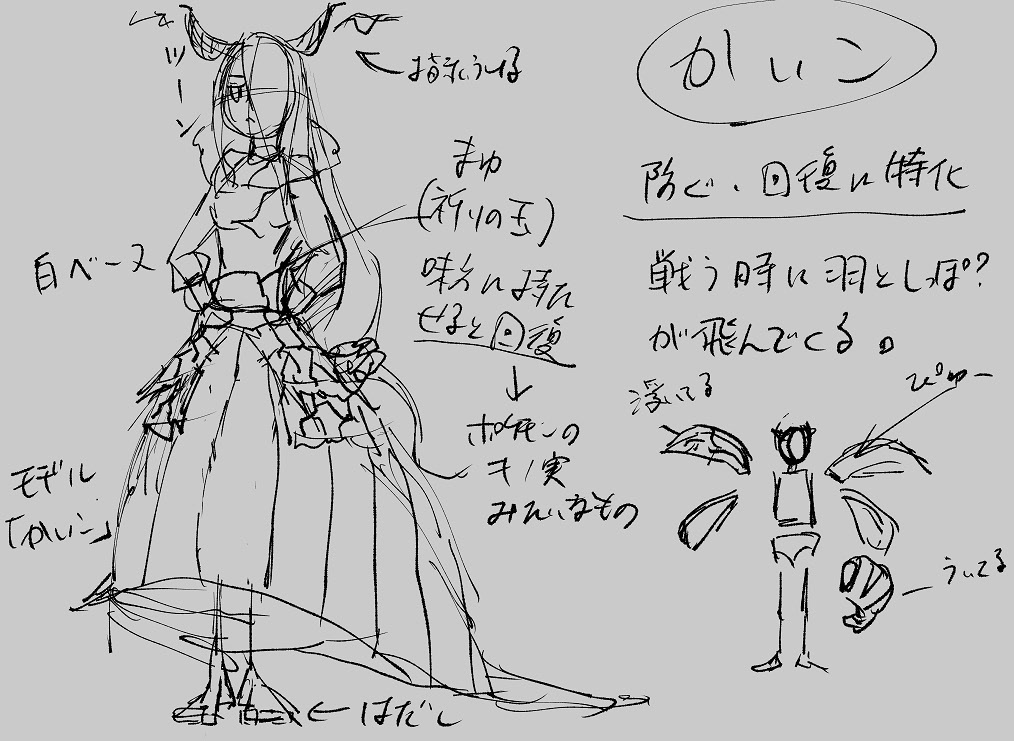 かいこ
防ぐ、回復に特化
戦う時に羽としっぽ?
が飛んでくる。
ツーン
まゆ
(祈りの玉)
味方に持た
せると回復
↓
ポケモンの
キノ実
みたいなもの
白ベース
モデル
「かいこ」
← はだし
浮いてる
ぴゅー
ういてる